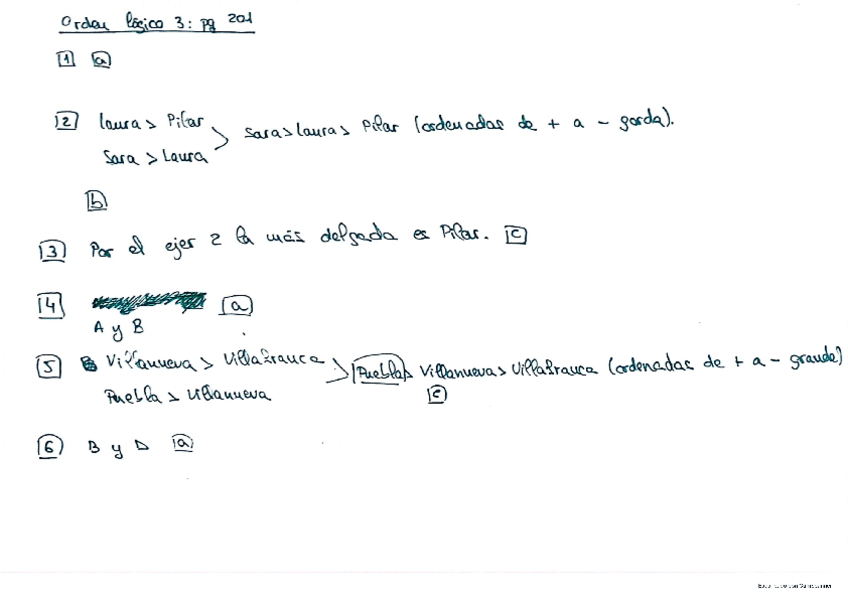 Orden lógico 3: pg 201
1 a
2 Laura > Pilar
Sara > Laura
Sara > Laura > Pilar (ordenadas de + a - gorda).
b
3 Por el ejer 2 la más delgada es Pilar. c
4 a
A y B
5 Villanueva > Villafranca
Puebla > Villanueva
Puebla > Villanueva > Villafranca (ordenadas de + a - grande)
c
6 B y D a